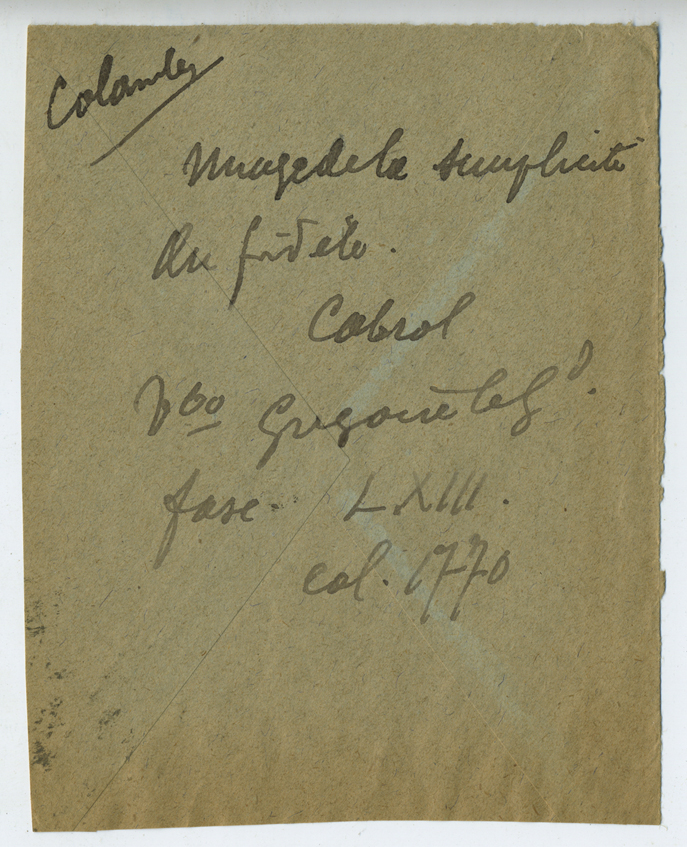 Colombe
Image de la simplicité
du fidèle.
Cabrol
Vbo Grégoire le Gd.
fasc. LXIII.
col. 1770